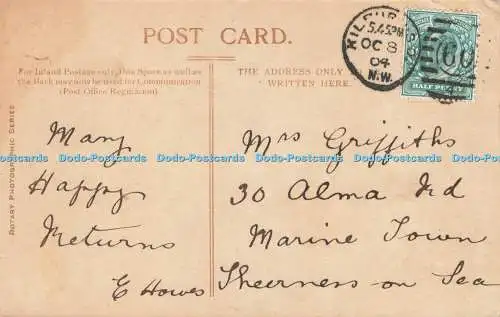 POST CARD.
For Inland Postage only, this Space as well as
the Back may now be used for Communication
(Post Office Regulation)
THE ADDRESS ONLY
WRITTEN HERE.
KILBUR
5.45PM
OC 8
04
N.W.
HALF PENNY
ROTARY PHOTOGRAPHIC SERIES
Many
Happy
Returns
E Howes
Mrs Griffiths
30 Alma Rd
Marine Town
Sheerness on Sea
Dodo-Postcards Dodo-Postcards Dodo-Postcards Dodo-Postcards Dodo-Postcards